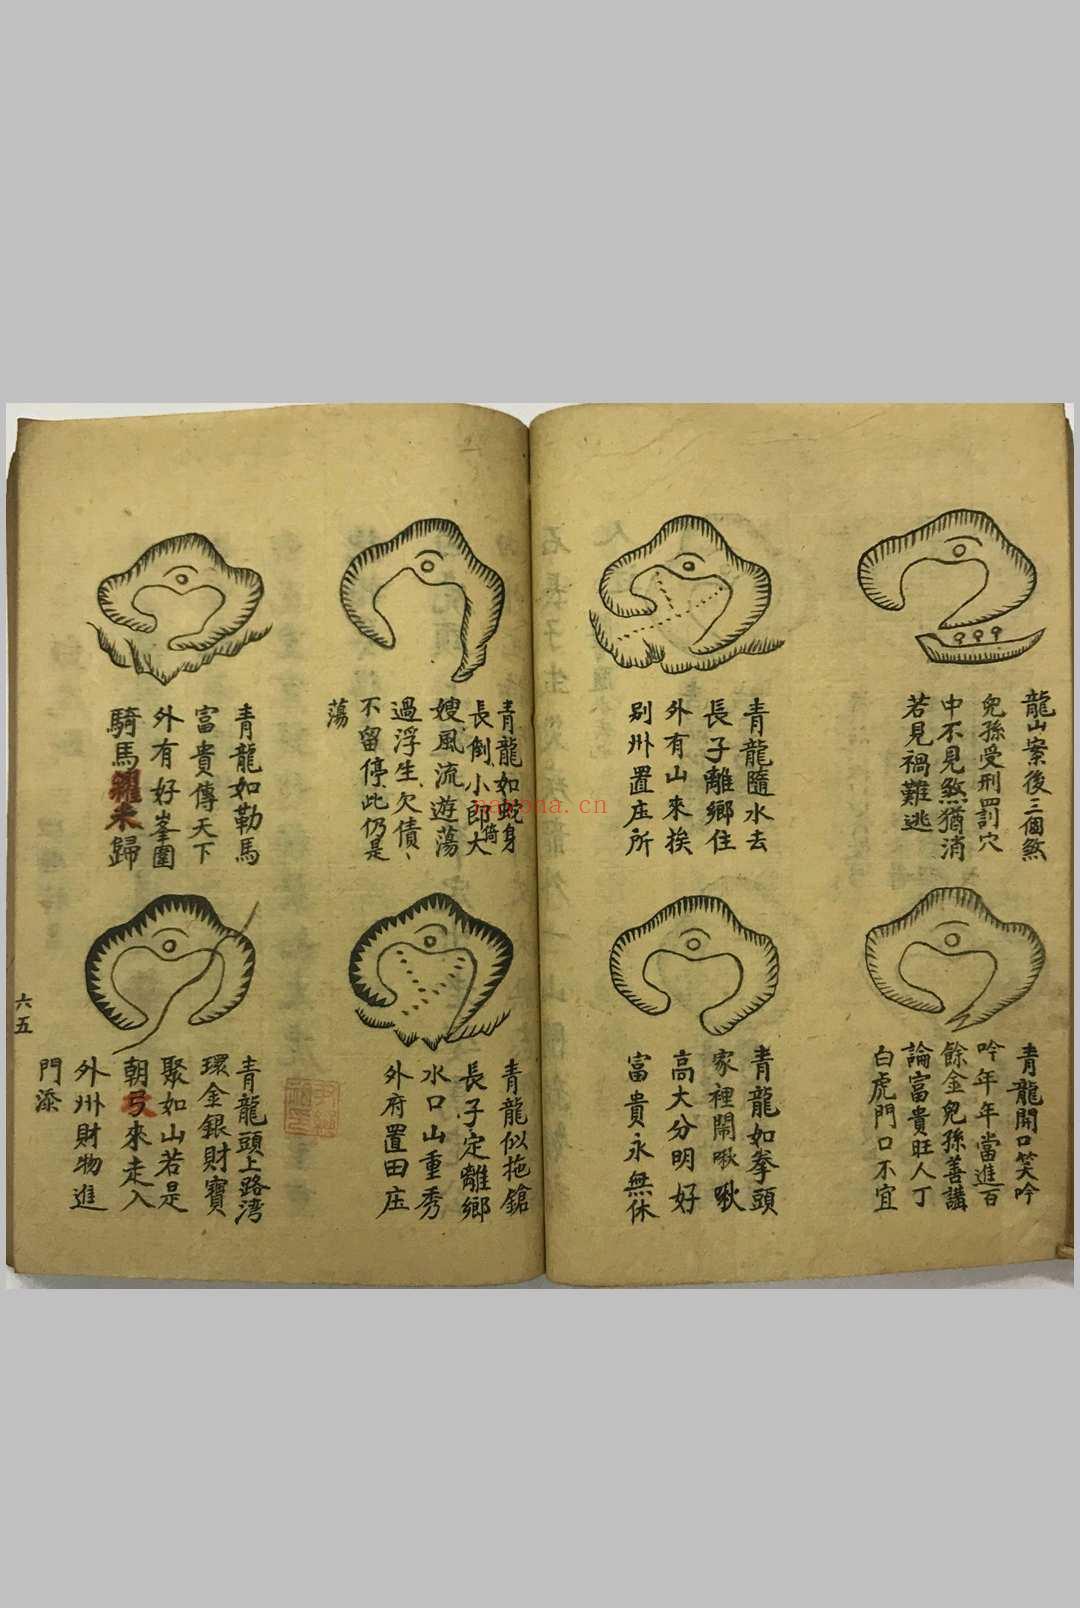 龍山案後三個煞
兒孫受刑罰穴
中不見煞猶消
若見禍難逃
青龍隨水去
長子離鄉住
外有山來挨
别州置庄所
青龍開口笑吟
吟年年當進百
餘金兒孫善講
論富貴旺人丁
白虎門口不宜
青龍如拳頭
家裡鬧啾啾
高大分明好
富貴永無休
青龍如蛇身
長倒小郎倚大
嫂風流遊蕩
過浮生欠債
不留停此仍是
蕩
青龍如勒馬
富貴傳天下
外有好峯圍
騎馬耀朱歸
青龍似拖鎗
長子定離鄉
水口山重秀
外府置田庄
青龍頭上路湾
環金銀財寶
聚如山若是
朝弓來走入
外州財物進
門添
六五
nayona.cn